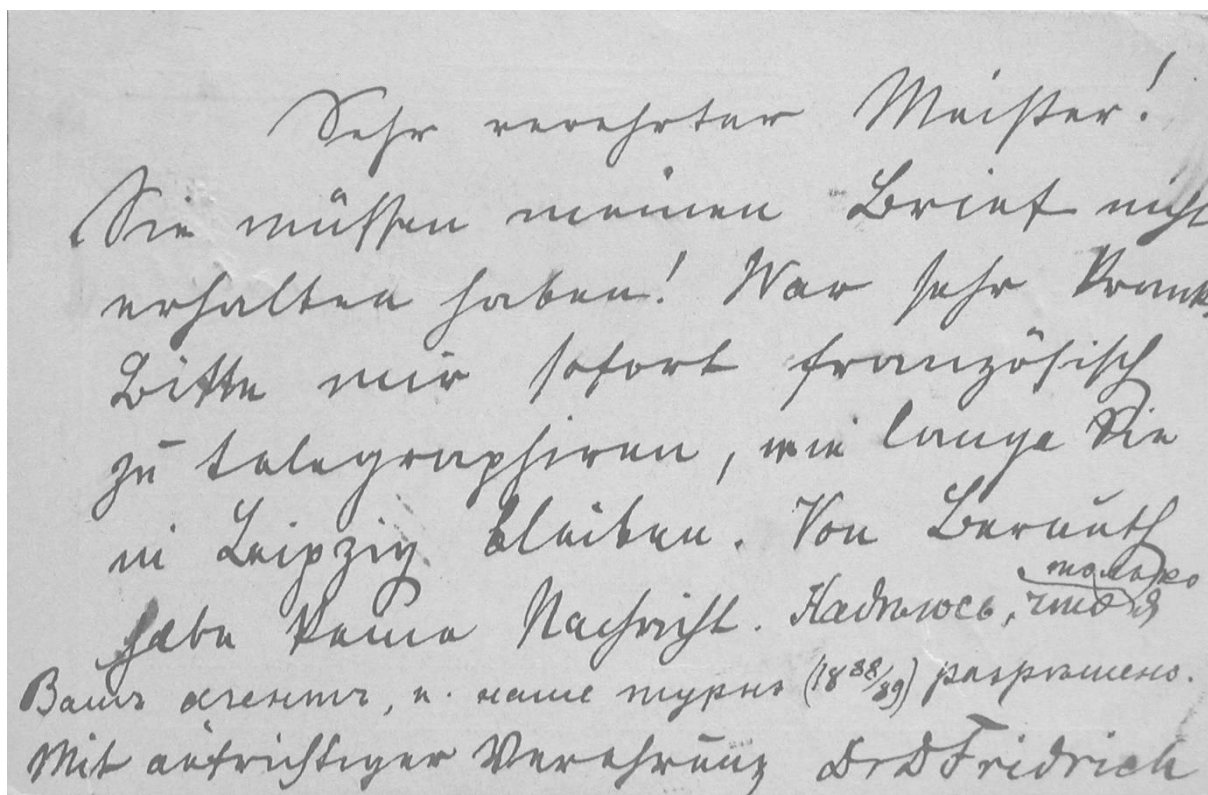 Sehr verehrter Meister!
Sie müssen meinen Brief nicht
erhalten haben! War sehr krank.
Bitte mir sofort französisch
zu telegraphiren, wie lange Sie
in Leipzig bleiben. Von Bernuth
habe keine Nachricht. Надѣюсь, что я только
Вашъ агентъ, и наше турнэ (18 88/89) разрѣшено.
Mit aufrichtiger Verehrung Dr D Fridrich